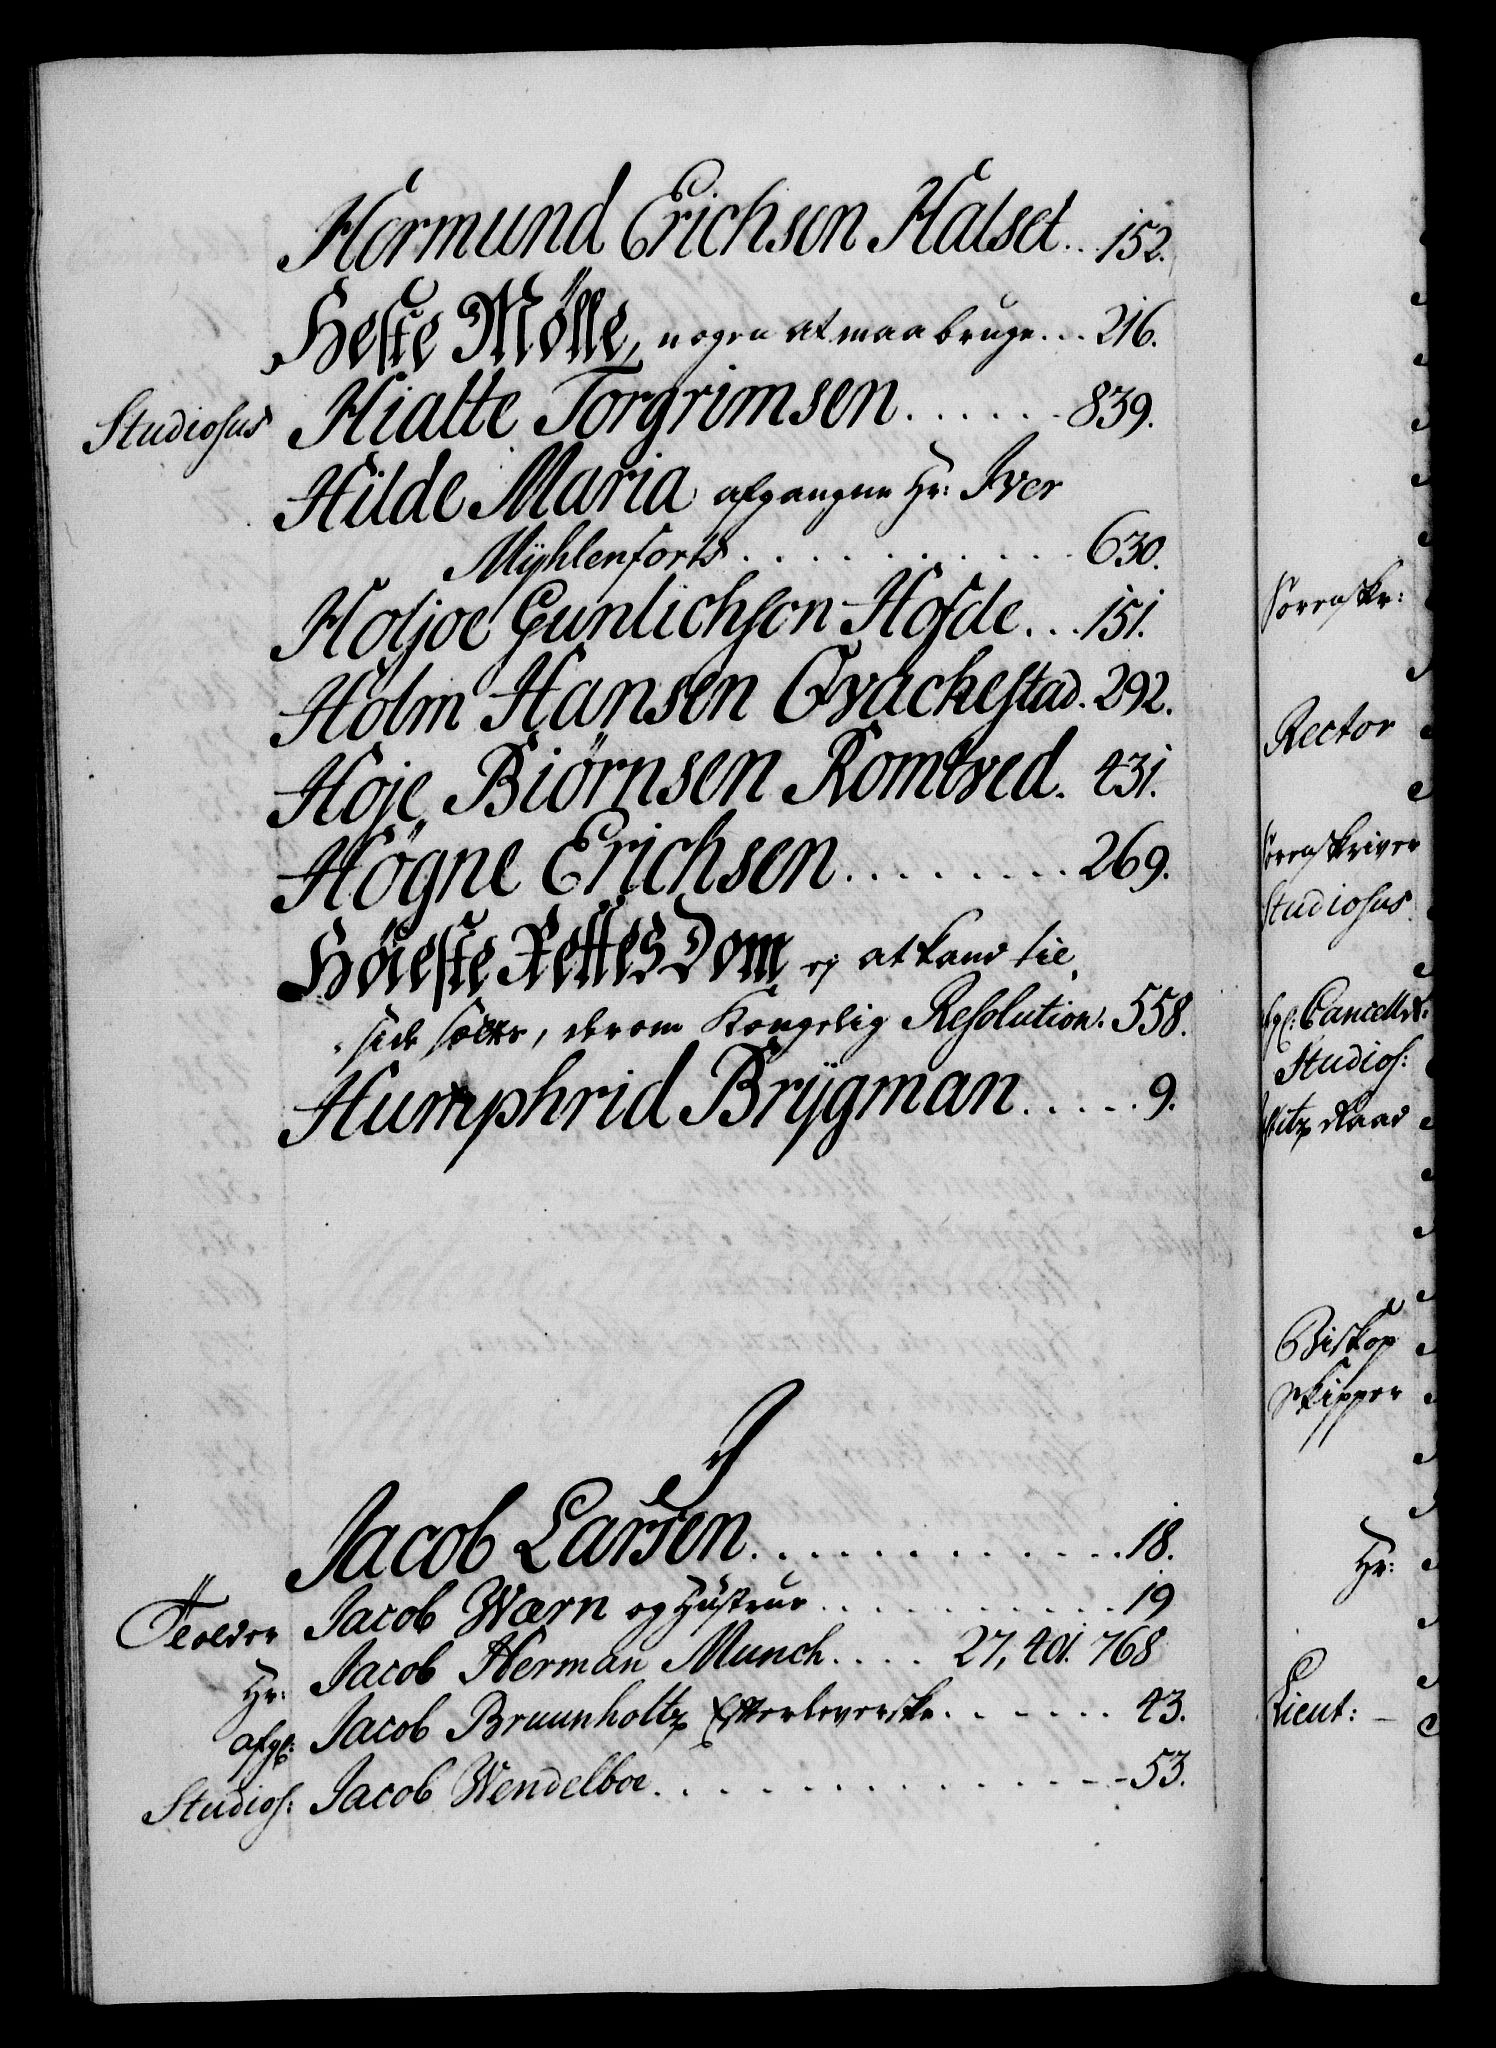 Hermund Erichsen Halset . . 152.
Heste Mølle, nogen at maa bruge . . . 216.
Studiosus Hialte Torgrimsen . . . . . . 839.
Hilde Maria afgangne Hr: Iver
Mÿhlenforts . . . . . . . . . . 630.
Holjoe Gunlichsen Hofde . . . 151.
Holm Hansen Qvackestad . 292.
Hoje Biørnsen Romtved . 431.
Høgne Erichsen . . . . . . . . 269.
Høieste Rettes Dom ej at kand til
side sættes, derom Kongelig Resolution . 558.
Humphrid Brÿgman . . . . . 9.
J
Jacob Larsen . . . . . . . . . . . . 18.
Tolder Jacob Wærn og Hustrue . . . . . . . . . . . 19
Hr: Jacob Herman Munch . . . . 27, 401. 768
afg: Jacob Bruunholtz Efterleverske . . . . . . . 43.
Studios: Jacob Wendelboe . . . . . . . . . . . . . . . 53.
Sorenskr:
Rector
Sorenskriver
Studiosus
afg: Cancellr:
Studios:
Biskop
Skipper
Hr:
Lieut: –